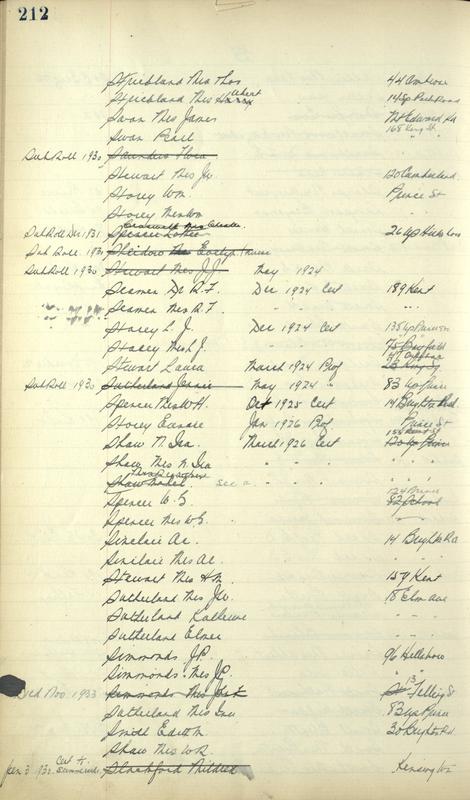 212
Strickland Mrs Thos 44 Ambrose
Strickland Mrs Albert 145 Up Park Road
Swan Mrs James Mt Edward Rd
Swan Pearl 168 King St
Sub Roll 1930 Saunders
Stewart Mrs Jas 20 Cumberland
Storey Wm Prince St
Storey Mrs Wm
Sub Roll Dec 1931 Mrs Chester Spencer 26 Up Hillsboro
Sub Roll 1931 Sheidow Evelyn
Sub Roll 1930 Stewart Mrs J.J. May 1924
Seamer Dr R.F. Dec 1924 Cert 189 Kent
Seamer Mrs R.F. " " "
Storey L. J. Dec 1924 Cert 135 Up Prince
Storey Mrs L J. 75 Bayfield
Stewart Laura March 1924 Prof
Sub Roll 1930 Sutherland Jennie May 1924 " 83 Up Prince
Spencer Mrs W.H. Oct 1925 Cert 14 Brighton Rd.
Storey Eunice Jan 1926 Prof Prince St
Shaw N. Ira March 1926 Cert 155 Kent St
Shaw Mrs N. Ira " " "
Shaw Mabel see a. " " "
Spencer W. G. 124 Prince 82 School
Spencer Mrs W.G.
Sinclair Al. 14 Brighton Rd
Sinclair Mrs Al. " "
Stewart Mrs H.M. 157 Kent
Sutherland Mrs Jas. 18 Elm Ave
Sutherland Kathleene " " "
Sutherland Elmer
Simmonds J.P. 96 Hillsboro
Simmonds Mrs J.P. " "
Died Nov. 1933 Simmonds Mrs 13 Fitzroy St
Sutherland Mrs Geo. 83 Up Prince
Smith Edith M. 30 Brighton Rd.
Shaw Mrs W.R.
Jan 3 1932 Cert to Summerside Stackford Mildred Kensington